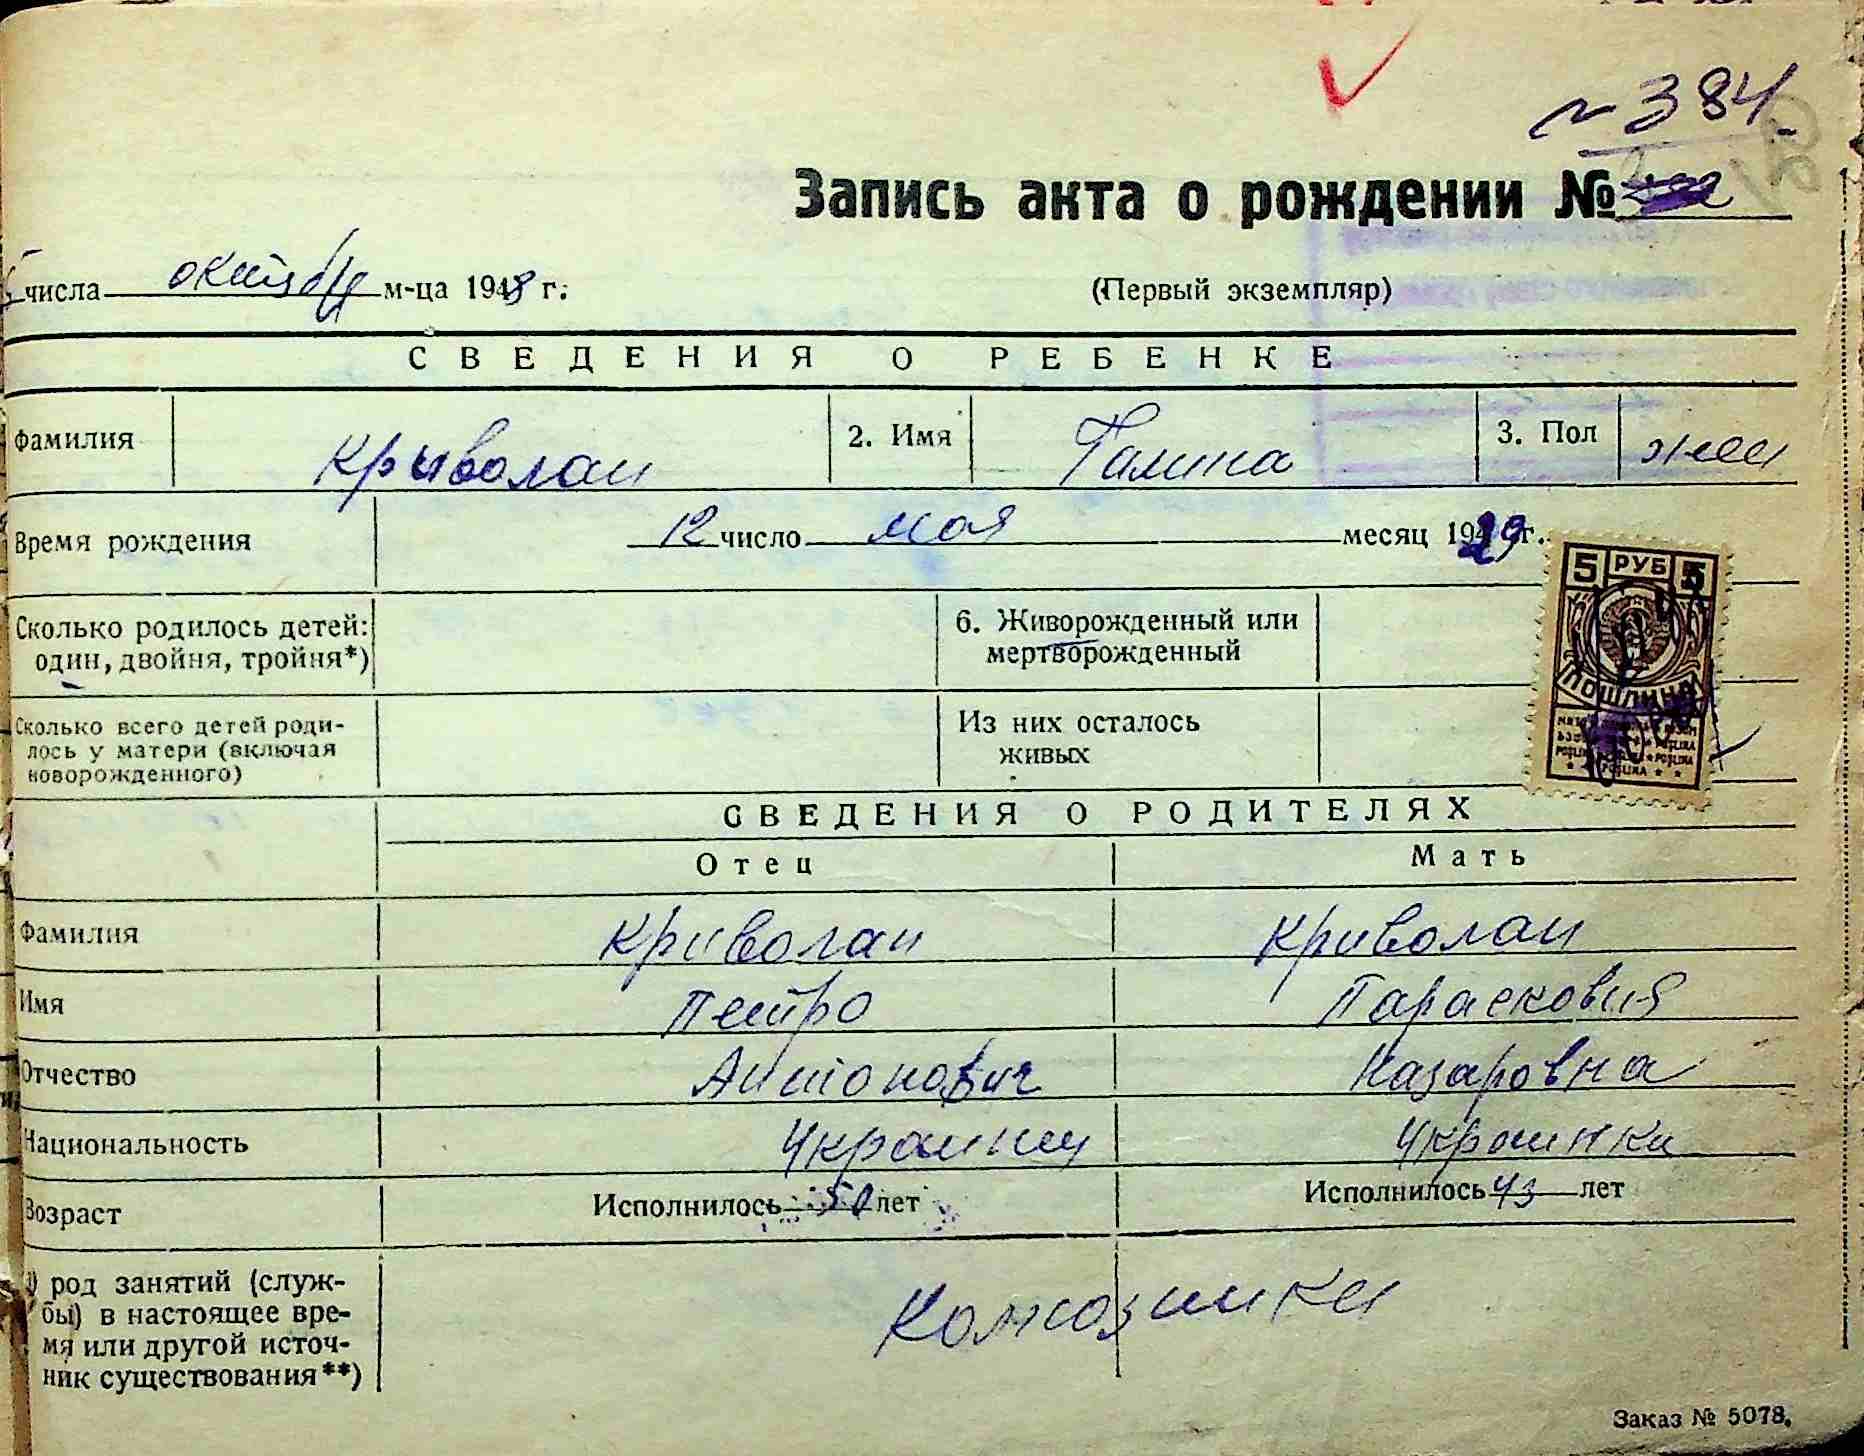 № 384
Запись акта о рождении №
числа октября м-ца 1948 г. (Первый экземпляр)
СВЕДЕНИЯ О РЕБЕНКЕ
Фамилия Криволап 2. Имя Галина 3. Пол жен
Время рождения 12 число мая месяц 1929 г.
Сколько родилось детей: 6. Живорожденный или
один, двойня, тройня*) мертворожденный
Сколько всего детей роди- Из них осталось
лось у матери (включая живых
новорожденного)
5 РУБ 5
ПОШЛИНА
СВЕДЕНИЯ О РОДИТЕЛЯХ
Отец Мать
Фамилия Криволап Криволап
Имя Петро Парасковия
Отчество Антонович Назаровна
Национальность Украинец Украинка
Возраст Исполнилось 50 лет Исполнилось 43 лет
род занятий (служ-
бы) в настоящее вре-
мя или другой источ-
ник существования**) Колхозники
Заказ № 5078.